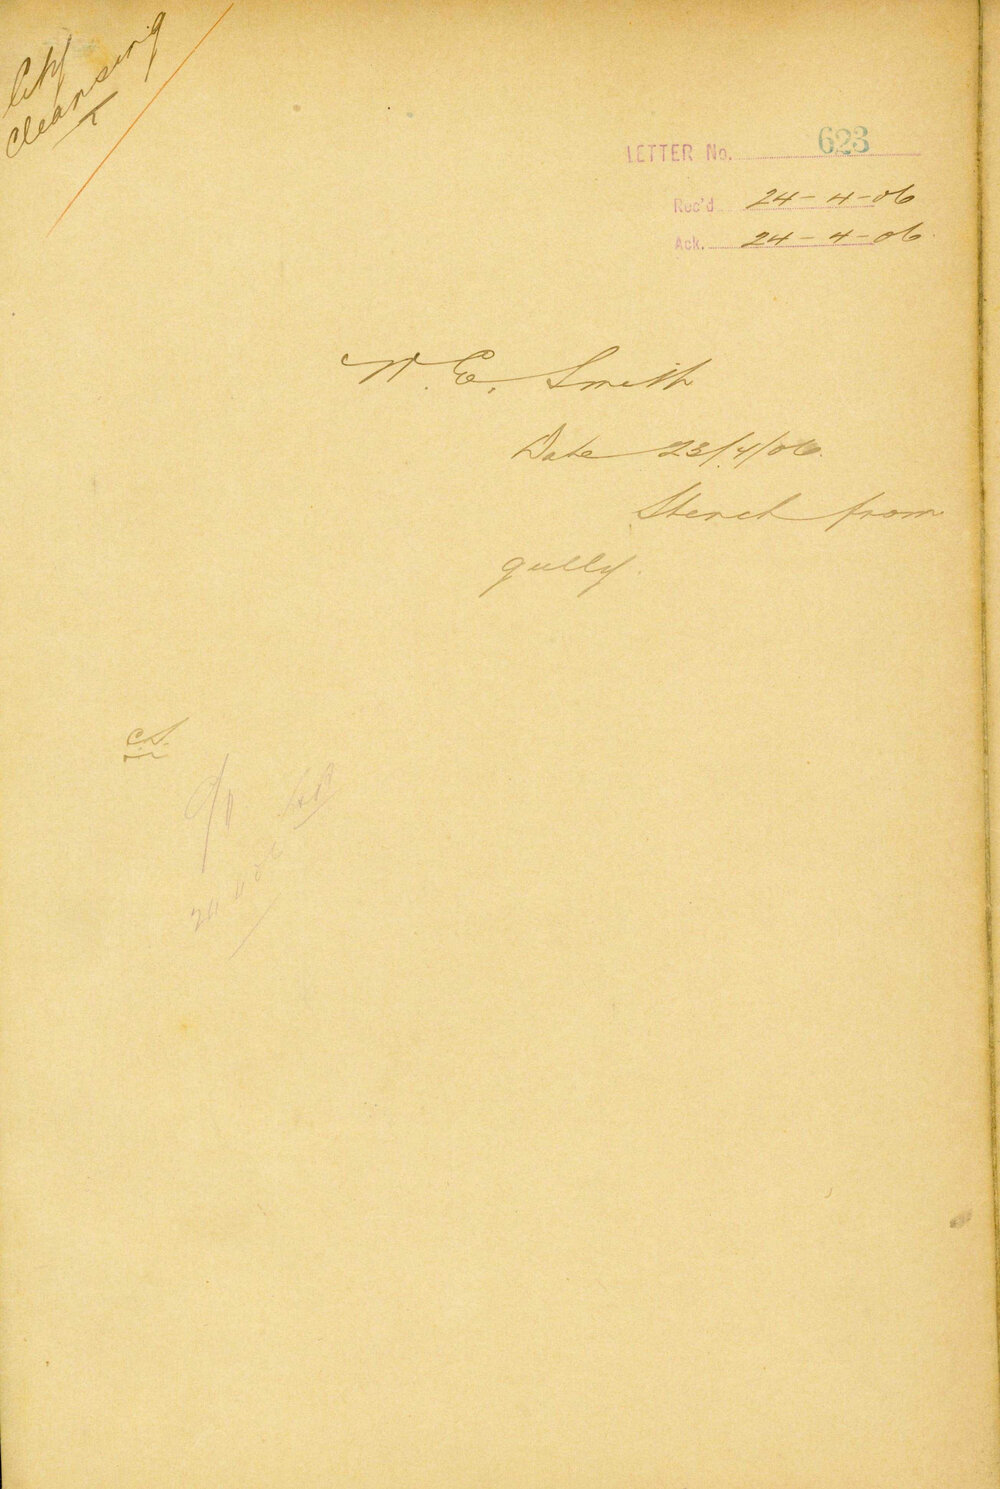 City
Cleansing
LETTER No. 623
Rec'd 24-4-06
Ack. 24-4-06
W. E. Smith
Date 23/4/06.
Stench from
gully.
C.S.
24 4 06